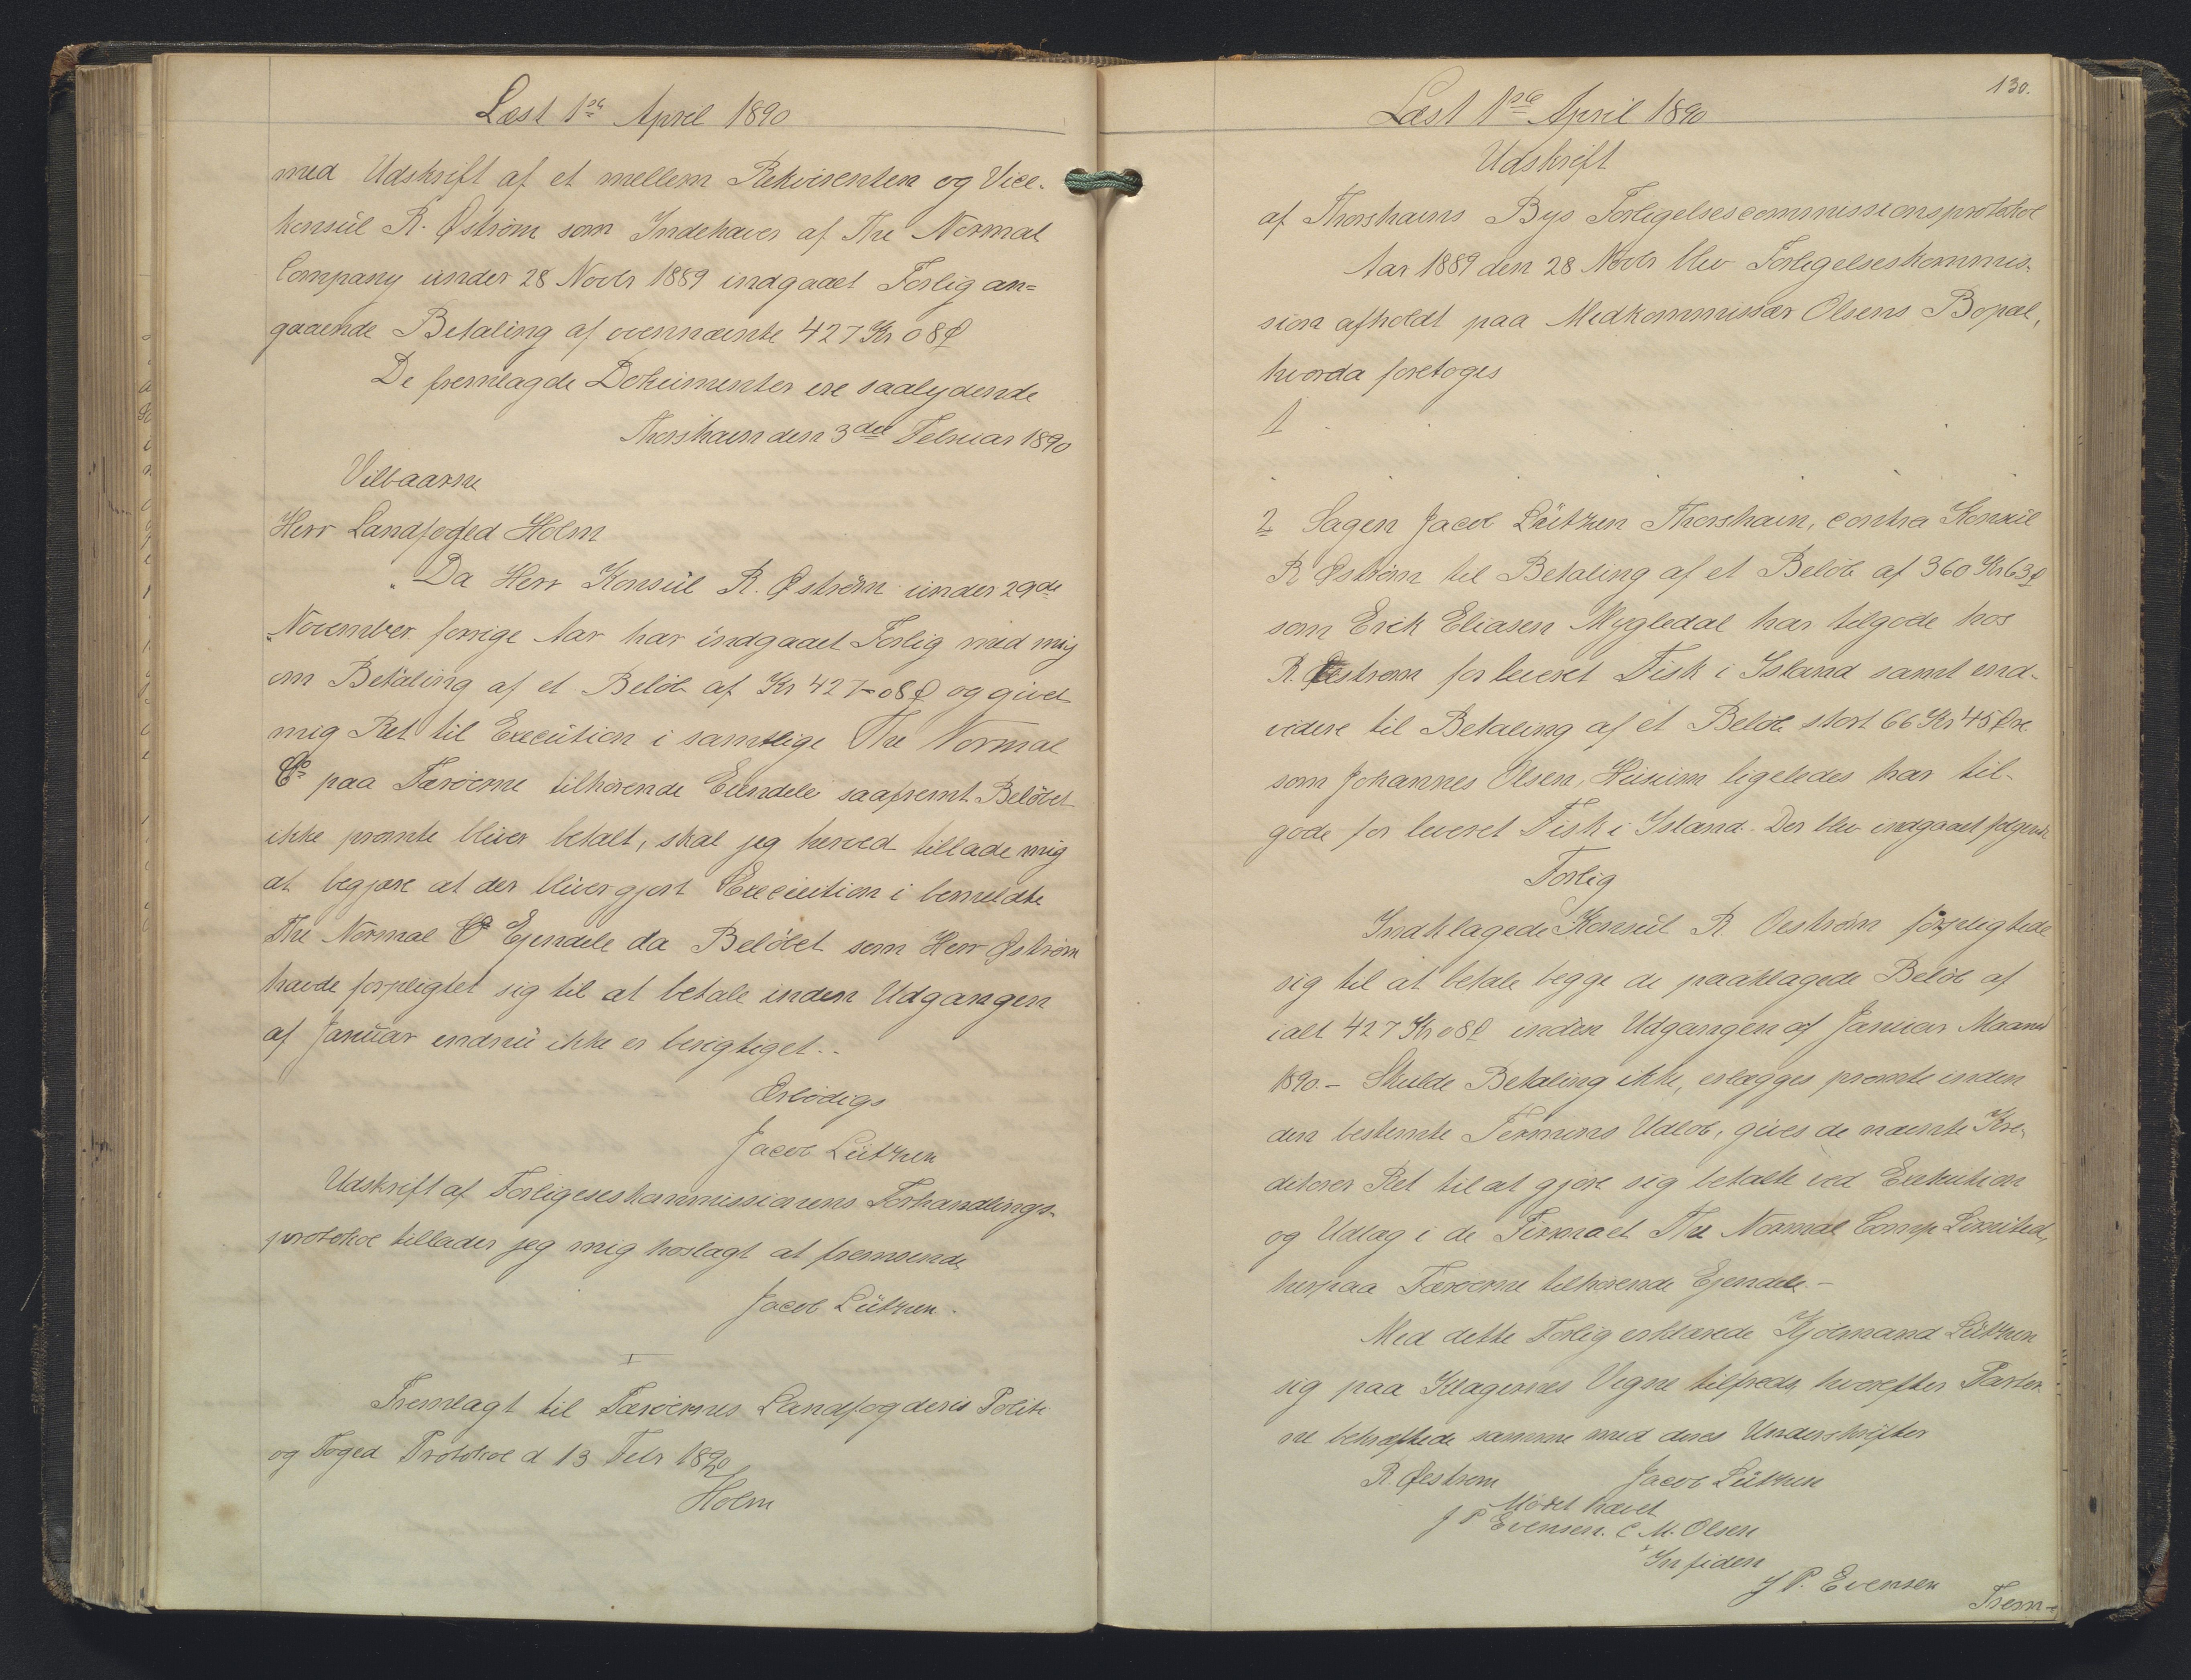 Læst 1ste April 1890
med Udskrift af et mellem Rekvirenten og Vice-
konsul R. Østrøm som Indehaver af The Normal
Company under 28 Novbr 1889 indgaaet Forlig an=
gaaende Betaling af ovennævnte 427 Kr 08 Ø
De fremlagde Dokumenter ere saalydende
Thorshavn den 3die Februar 1890
Velbaarne
Herr Landfoged Holm
Da Herr Konsul R. Østrøm under 29de
November forrige Aar har indgaaet Forlig med mig
om Betaling af et Beløb af Kr 427-08 Ø og givet
mig Ret til Execution i samtlige The Normal
Co paa Færøerne tilhørende Eiendele saafremt Beløbet
ikke promte bliver betalt, skal jeg herved tillade mig
at begjære at der bliver gjort Execution i bemeldte
The Normal Co Ejendele da Beløbet som Herr Østrøm
havde forpligtet sig til at betale inden Udgangen
af Januar endnu ikke er berigtiget..
Ærbødigs
Jacob Lützen
Udskrift af Forligeseskommissionens Forhandlings-
protokol tillader jeg mig hoslagt at fremsende
Jacob Lützen.
Fremlagt til Færøernes Landfogderis Politi
og Foged Protokol d 13 Febr 1890
Holm
130.
Læst 1ste April 1890
Udskrift
af Thorshavns Bys Forligelsescommissionsprotokol
Aar 1889 den 28 Novbr blev Forligelseskommis-
sion afholdt paa Medkommissær Olsens Bopæl,
hvorda foretoges
1
2 Sagen Jacob Lützen Thorshavn, contra Konsul
R Østrøm til Betaling af et Beløb af 360 Kr 63 Ø
som Erik Eliasen Mygledal har tilgode hos
R. Østrøm for leveret Fisk i Island samt end-
videre til Betaling af et Beløb stort 66 Kr 45 Øre
som Johannes Olsen, Husum ligeledes har til-
gode for leveret Fisk i Island. Der blev indgaaet følgende
Forlig
Indklagede Konsul R. Oestrøm forpligtede
sig til at betale begge de paaklagede Beløb af
ialt 427 Kr 08 Ø inden Udgangen af Januar Maaned
1890.- Skulde Betaling ikke, erlægges promte inden
den bestemte Termins Udløb, gives de nævnte Kre-
ditorer Ret til at gjøre sig betalte ved Exekution
og Udlæg i de Firmaet The Normal Comp Limited,
herpaa Færøerne tilhørende Ejendele.-
Med dette Forlig erklærede Kjøbmand Lützen
sig paa Klagernes Vegne tilfreds, hvorefter Parter-
ne bekræftede samme med deres Underskrifter
R. Østrøm Jacob Lützen
Mødet hævet
J P Evensen. C M. Olsen
In fidem
J P. Evensen
Frem-